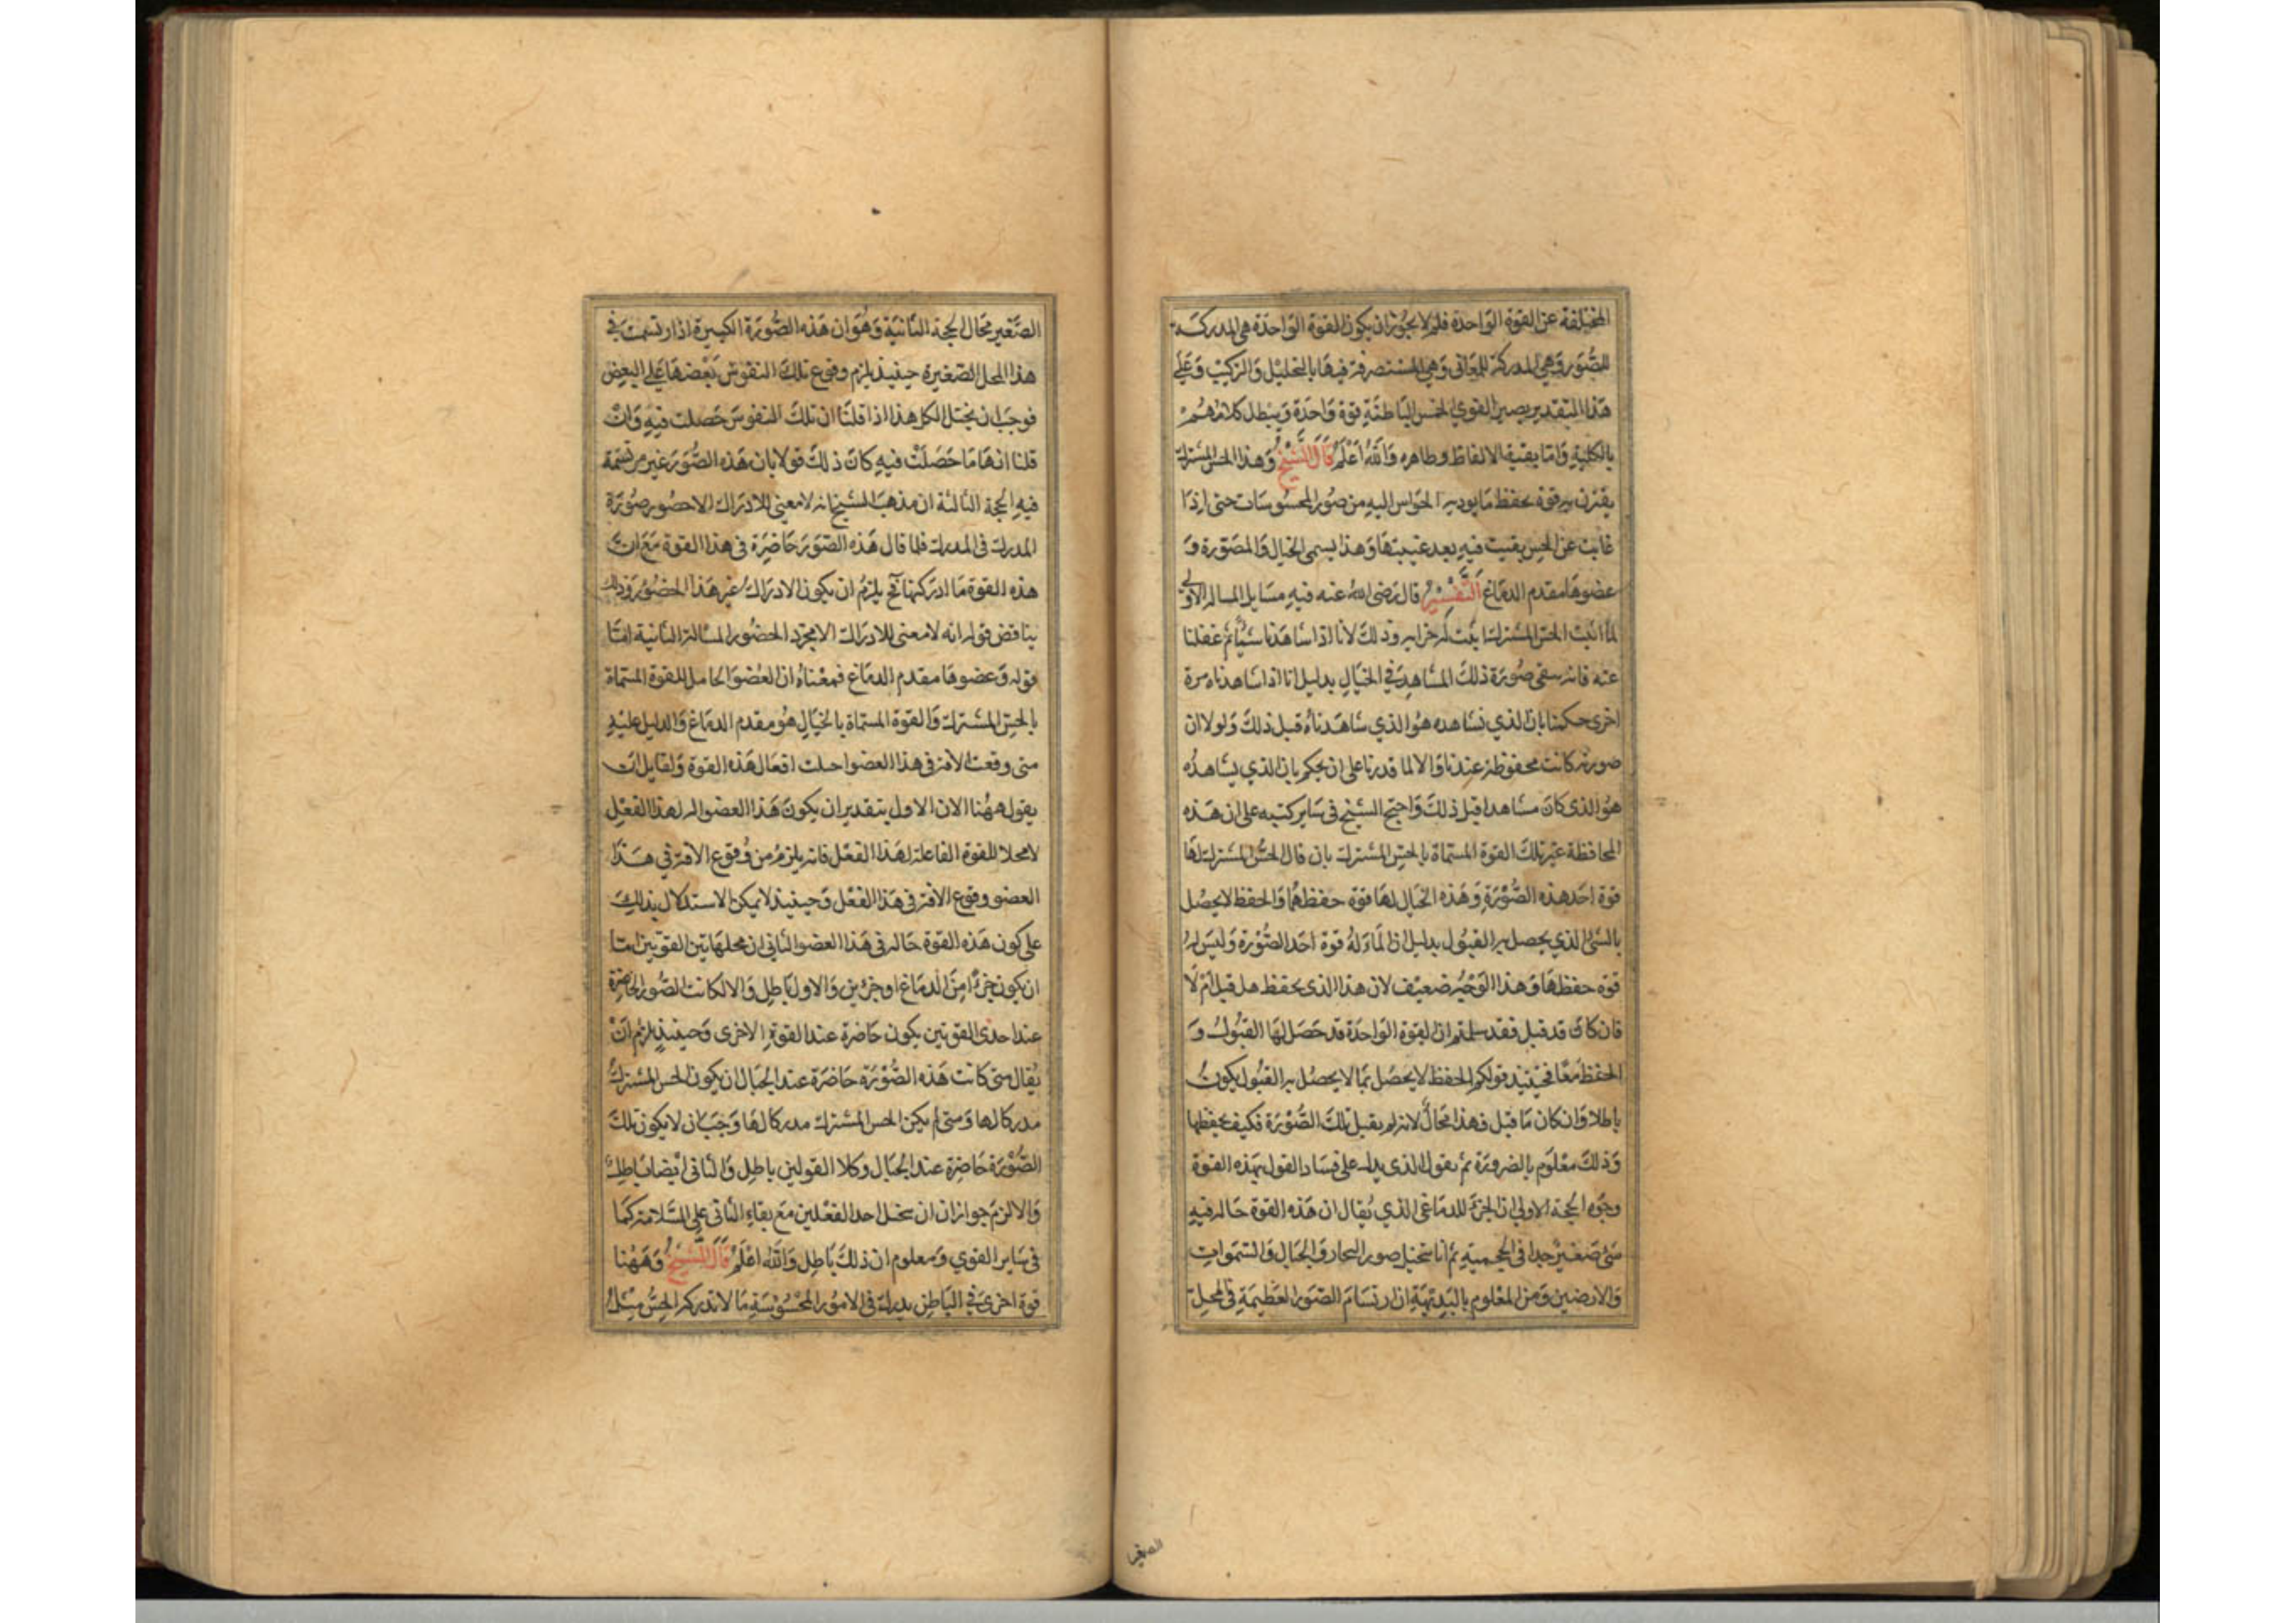 المختلفة عن القوة الواحدة فلم لا يجوز ان يكون القوة الواحدة هي المدركة
للصور وهي المدركة للمعاني وهي المتصرفة فيها بالتحليل والتركيب وعلى
هذا التقدير يصير القوى الخمس الباطنة قوة واحدة ويبطل كلامهم
بالكلية واما بقية الالفاظ فظاهره والله اعلم قال الشيخ وهذا الحس المشترك
يقترن به قوة تحفظ ما يوديه الحواس اليه من صور المحسوسات حتى اذا
غابت عن الحس بقيت فيه بعد غيبتها وهذا يسمى الخيال والمصورة و
عضوها مقدم الدماغ التفسير قال رضى الله عنه فيه مسايل المساله الاولى
لما اثبت الحس المشترك اثبت له خزانه وذلك لانا اذا شاهدنا شيأ ثم غفلنا
عنه فانه يبقى صورة ذلك المشاهد في الخيال بدليل انا اذا شاهدناه مرة
اخرى حكمنا بان الذي نشاهده هو الذي شاهدناه قبل ذلك ولولا ان
صورته كانت محفوظة عندنا والا لما قدرنا على ان نحكم بان الذي نشاهده
هو الذى كان مشاهدا قبل ذلك واحتج الشيخ فى ساير كتبه على ان هذه
الحافظة غير تلك القوة المسماة بالحس المشترك بان قال الحس المشترك لها
قوة اخذ هذه الصورة وهذه الخيال لها قوة حفظها والحفظ لا يحصل
بالشئ الذي يحصل به القبول بدليل ان الماء له قوة اخذ الصورة وليس له
قوة حفظها وهذا الوجه ضعيف لان هذا الذى يحفظ هل قبل ام لا
فان كان قد قبل فقد سلمتم ان القوة الواحدة قد حصل لها القبول و
الحفظ معا فحينئذ قولكم الحفظ لا يحصل بما لا يحصل به القبول يكون
باطلا وان كان ما قبل فهذا محال لانه لم يقبل تلك الصورة فكيف يحفظها
وذلك معلوم بالضرورة ثم نقول الذى يدل على فساد القول بهذه القوة
وجوه الحجة الاولى ان الجزء الدماغى الذي يقال ان هذه القوة حاله فيه
شئ صغير جدا فى الحجمية ثم انا نتخيل صور البحار والجبال والسموات
والارضين ومن المعلوم بالبديهة ان ارتسام الصور العظيمة فى المحل
الصغير
الصغير محال الحجة الثانية وهو ان هذه الصورة الكبيرة اذا ارتسمت في
هذا المحل الصغيرة حينئذ يلزم وقوع تلك النقوش بعضها على البعض
فوجب ان يختل الكل هذا اذا قلنا ان تلك النقوش حصلت فيه وان
قلنا انها ما حصلت فيه كان ذلك قولا بان هذه الصور غير مرتسمة
فيه الحجة الثالثة ان مذهب الشيخ انه لا معنى للادراك الا حضور صورة
المدرك فى المدرك فلما قال هذه الصور حاضرة فى هذا القوة مع ان
هذه القوة ما ادركتها فح يلزم ان يكون الادراك غير هذا الحضور وذلك
يناقض قوله انه لا معنى للادراك الا مجرد الحضور المسالة الثانية اما
قوله وعضوها مقدم الدماغ فمعناه ان العضو الحامل للقوة المسماة
بالحس المشترك والقوة المسماة بالخيال هو مقدم الدماغ والدليل عليه
متى وقعت الافة فى هذا العضو اختلت افعال هذه القوة ولقايل ان
يقول ههنا الان الاول بتقدير ان يكون هذا العضو اله لهذا الفعل
لا محلا للقوة الفاعلة لهذا الفعل فانه يلزم من وقوع الافة في هذا
العضو وقوع الافة فى هذا الفعل وحينئذ لا يمكن الاستدلال بذلك
على كون هذه القوة حاله فى هذا العضو الثاني ان محل هاتين القوتين اما
ان يكون جزءا من الدماغ او جزئين والاول باطل والا لكانت الصور الحاضرة
عند احدى القوتين يكون حاضرة عند القوة الاخرى وحينئذ يلزم ان
يقال متى كانت هذه الصورة حاضرة عند الخيال ان يكون الحس المشترك
مدركا لها ومتى لم يكن الحس المشترك مدركا لها وجب ان لا يكون تلك
الصورة حاضرة عند الخيال وكلا القولين باطل والثانى ايضا باطل
والا لزم جواز ان ان يختل احد الفعلين مع بقاء الثانى على السلامة كما
فى ساير القوي ومعلوم ان ذلك باطل والله اعلم قال الشيخ وههنا
قوة اخرى في الباطن يدرك فى الامور المحسوسة ما لا تدركه الحس مثل